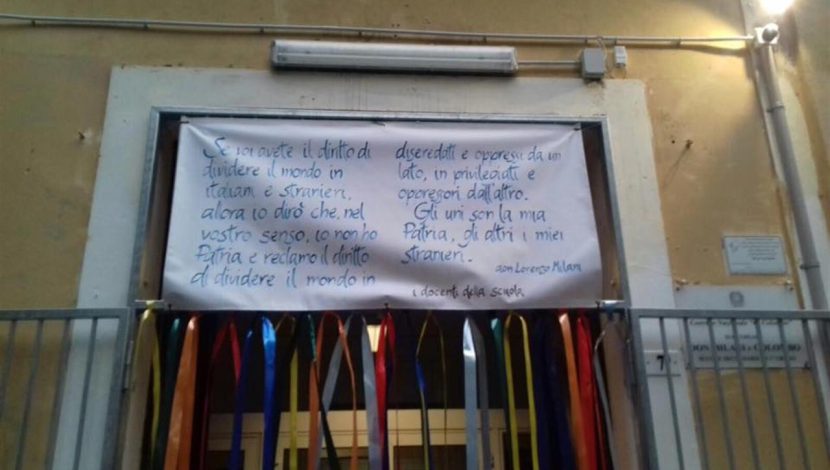 Se voi avete il diritto di
dividere il mondo in
italiani e stranieri,
allora io dirò che, nel
vostro senso, io non ho
Patria e reclamo il diritto
di dividere il mondo in
diseredati e oppressi da un
lato, in privilegiati e
oppressori dall'altro.
Gli uni son la mia
Patria, gli altri i miei
stranieri.
don Lorenzo Milani
i docenti della scuola